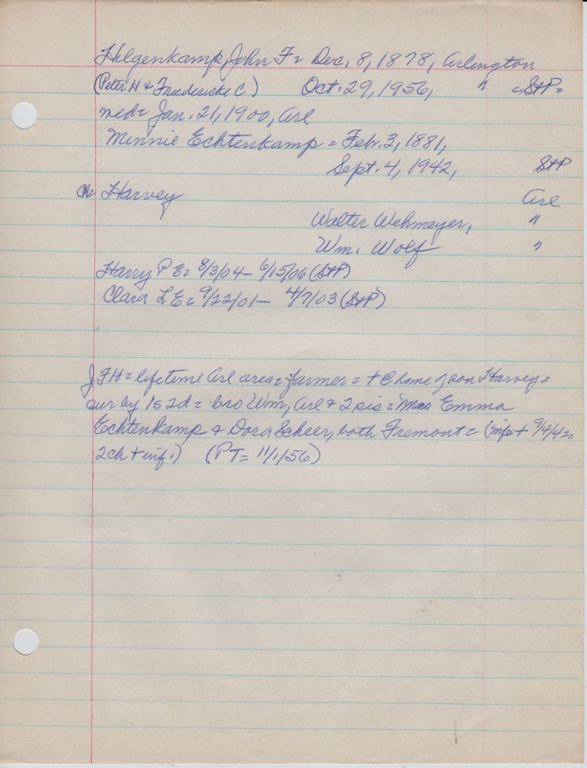 Hilgenkamp, John F = Dec. 8, 1878, Arlington
(Peter H & Fredericke C.) Oct. 29, 1956, " StP=
med= Jan. 21, 1900, Arl
Minnie Echtenkamp = Feb. 3, 1881,
Sept. 4, 1942, StP
Ch= Harvey Arl
Walter Wehmeyer, "
Wm. Wolf "
Harry P E= 8/3/04 - 6/15/06 (StP)
Clara L E= 9/22/01 - 4/7/03 (StP)
JFH= lifetime Arl area= farmer= + @ home of son Harvey=
sur by 1s 2d= bro Wm, Arl & 2 sis= Mmes Emma
Echtenkamp & Dora Scheer, both Fremont= ( + 9/4/42=
2ch + inf.) (PT= 11/1/56)